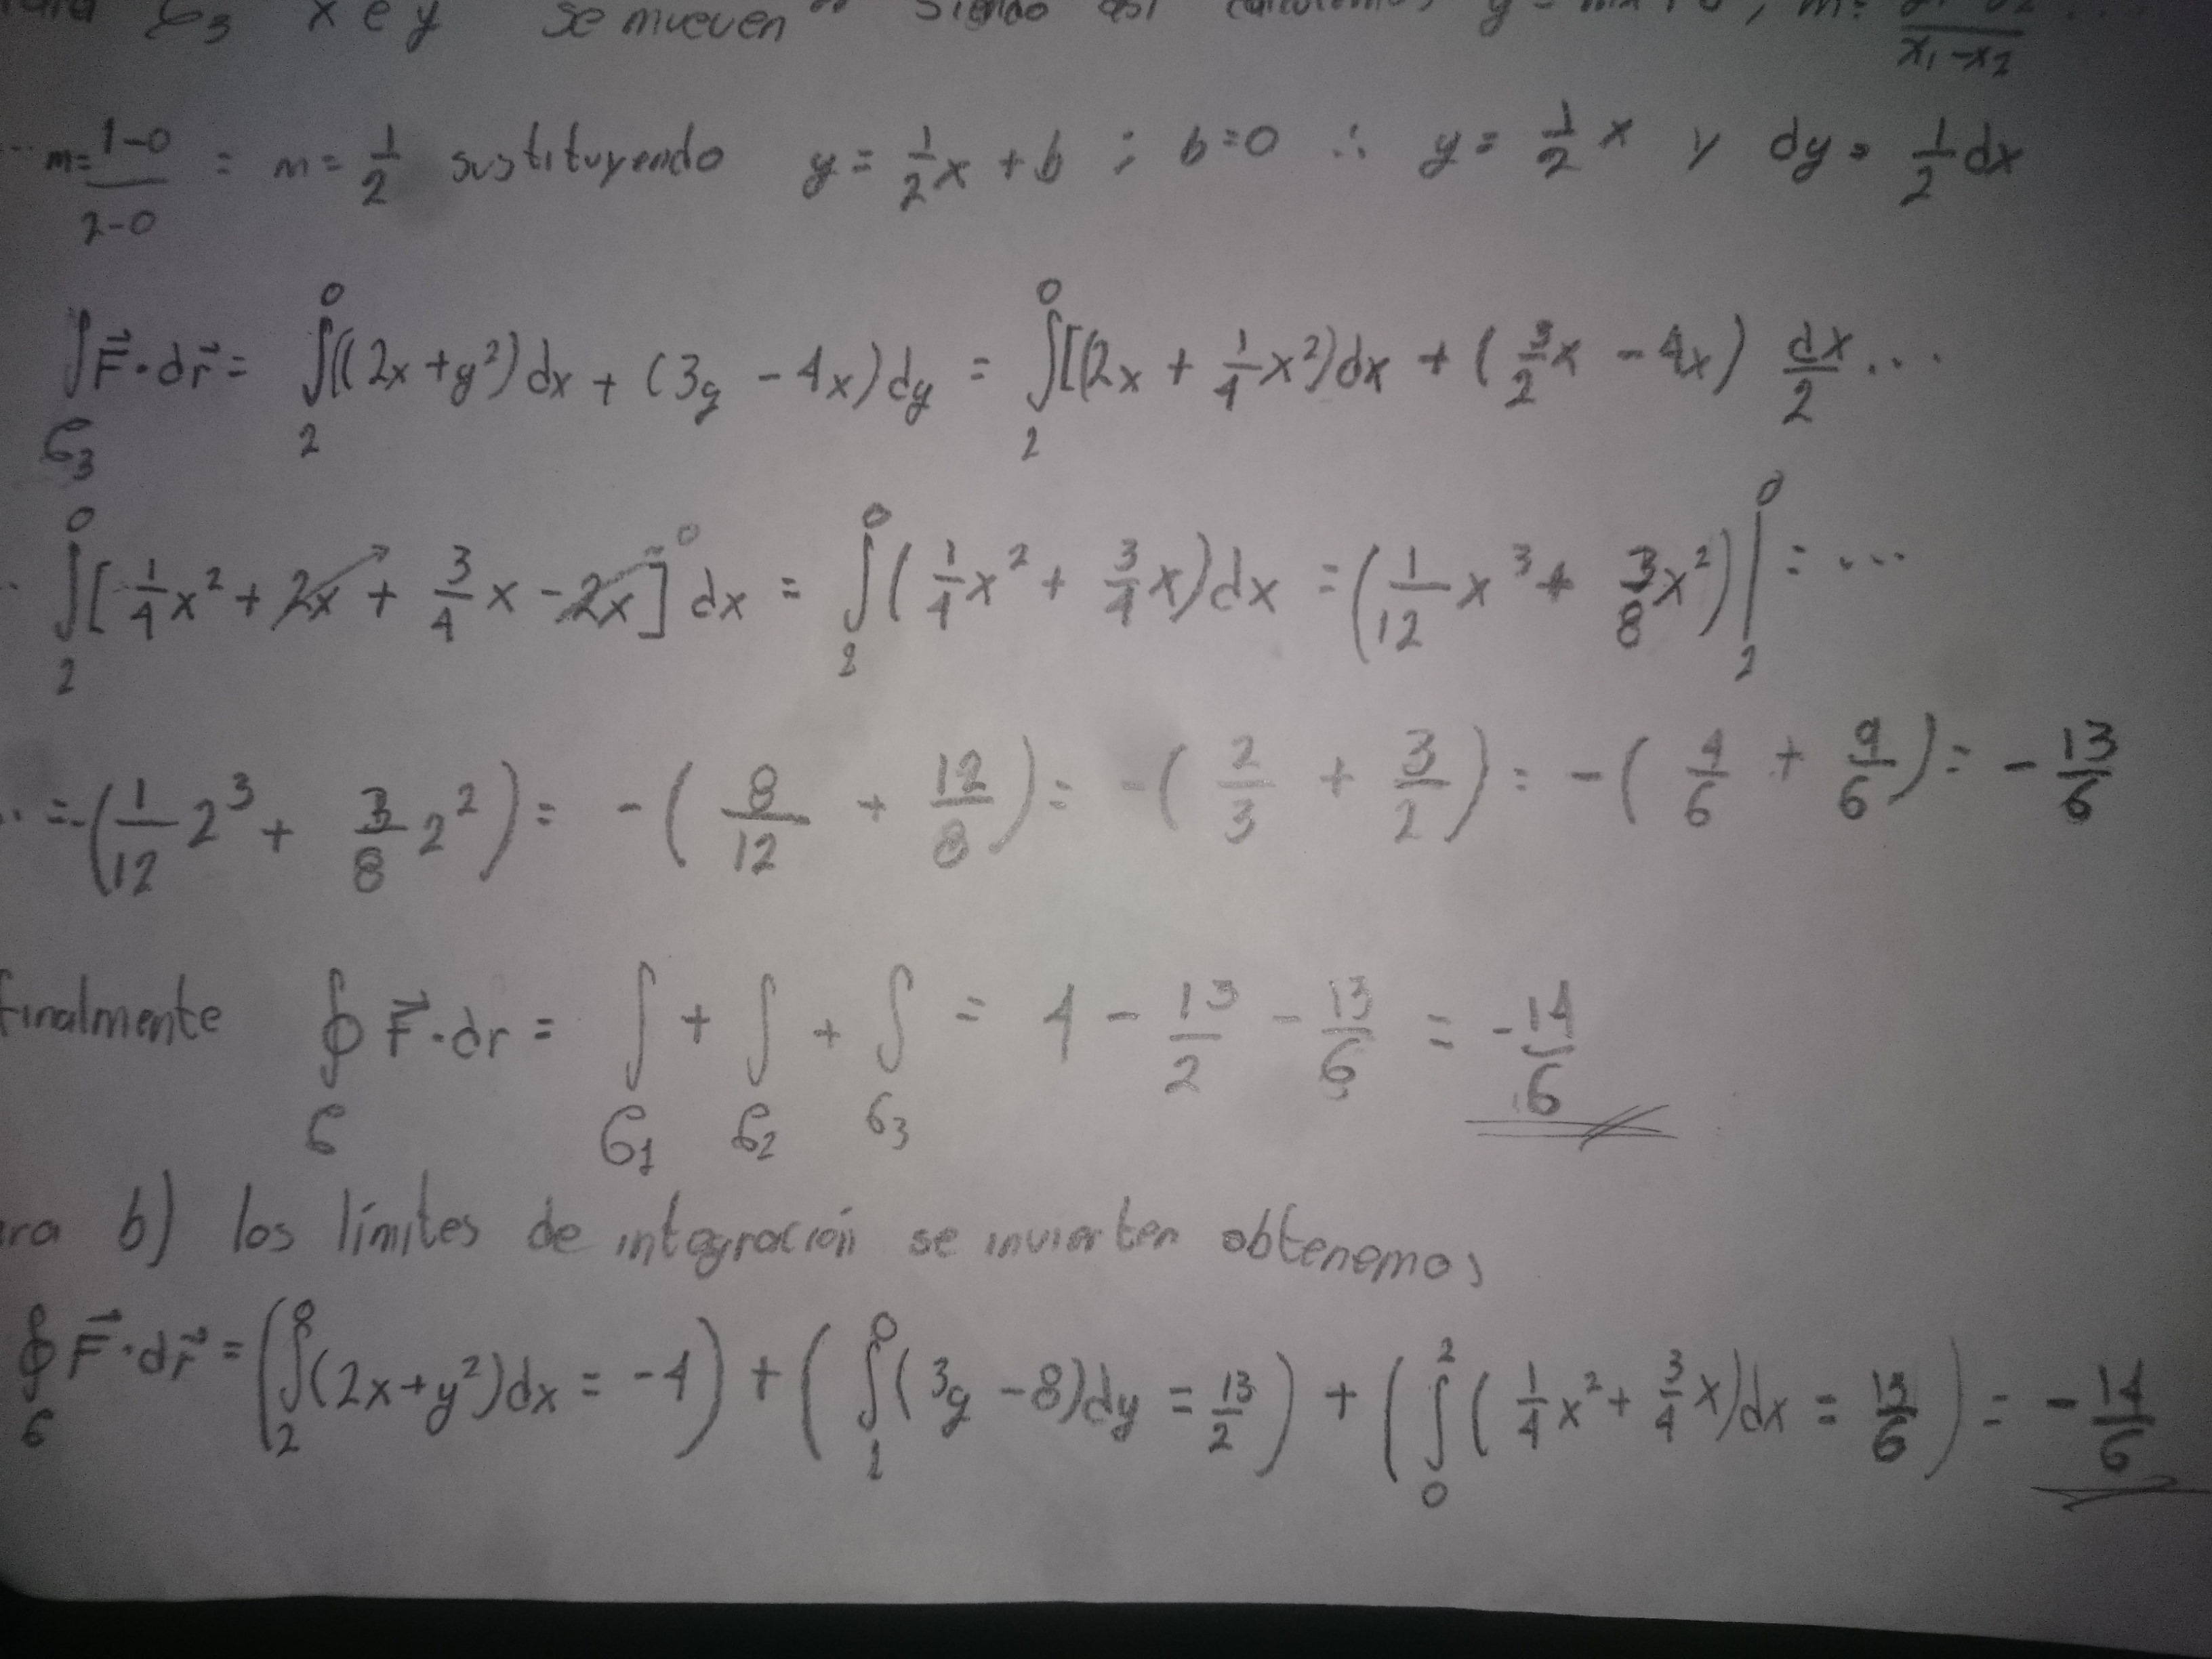 𝒞₃ x e y se mueven siendo así calculemos y = mx + b, m = ... / x₁-x₂
... m = (1-0)/(2-0) = m = 1/2 sustituyendo y = 1/2 x + b ; b=0 ∴ y = 1/2 x y dy = 1/2 dx
∫_𝒞₃ F⃗·dr⃗ = ∫₂⁰ ((2x+y²)dx + (3y - 4x)dy = ∫₂⁰ [(2x + 1/4 x²)dx + (3/2 x - 4x) dx/2 ...
.. ∫₂⁰ [1/4 x² + 2x + 3/4 x - 2x]⁰ dx = ∫₂⁰ (1/4 x² + 3/4 x)dx = (1/12 x³ + 3/8 x²)|₂⁰ = ...
.. = -(1/12 2³ + 3/8 2²) = -(8/12 + 12/8) = -(2/3 + 3/2) = -(4/6 + 9/6) = -13/6
finalmente ∮_𝒞 F⃗·dr = ∫_𝒞₁ + ∫_𝒞₂ + ∫_𝒞₃ = 4 - 13/2 - 13/6 = -14/6
ara b) los límites de integración se invierten obtenemos
∮_𝒞 F⃗·dr⃗ = (∫₂⁰ (2x+y²)dx = -4) + (∫₁⁰ (3y - 8)dy = 13/2) + (∫₀² (1/4 x² + 3/4 x)dx = 13/6) = -14/6